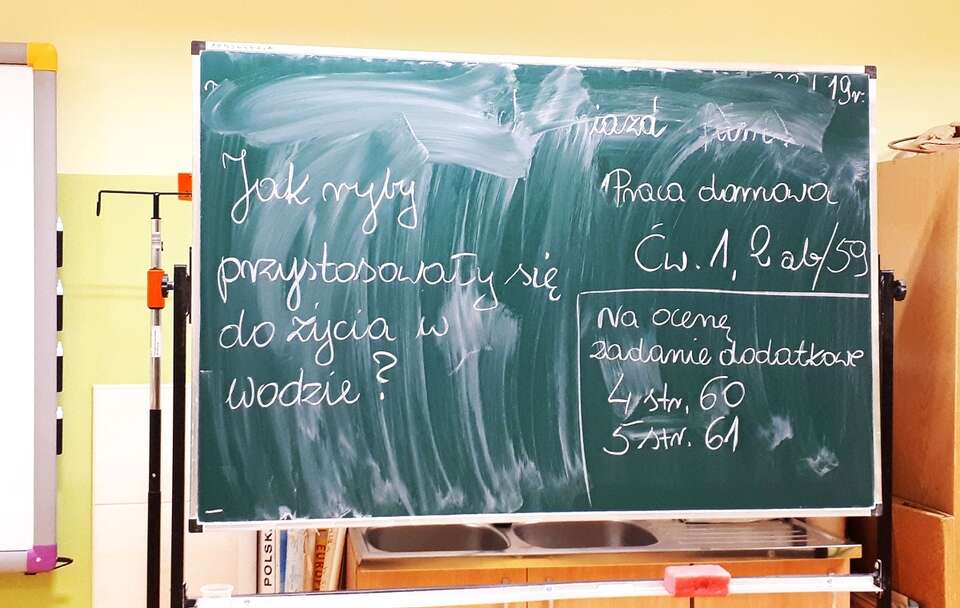 19r.
Jak ryby
przystosowały się
do życia w
wodzie?
Praca domowa
Ćw. 1, 2 ab/59
Na ocenę
zadanie dodatkowe
4 str. 60
5 str. 61
POLSKA
EUROPA